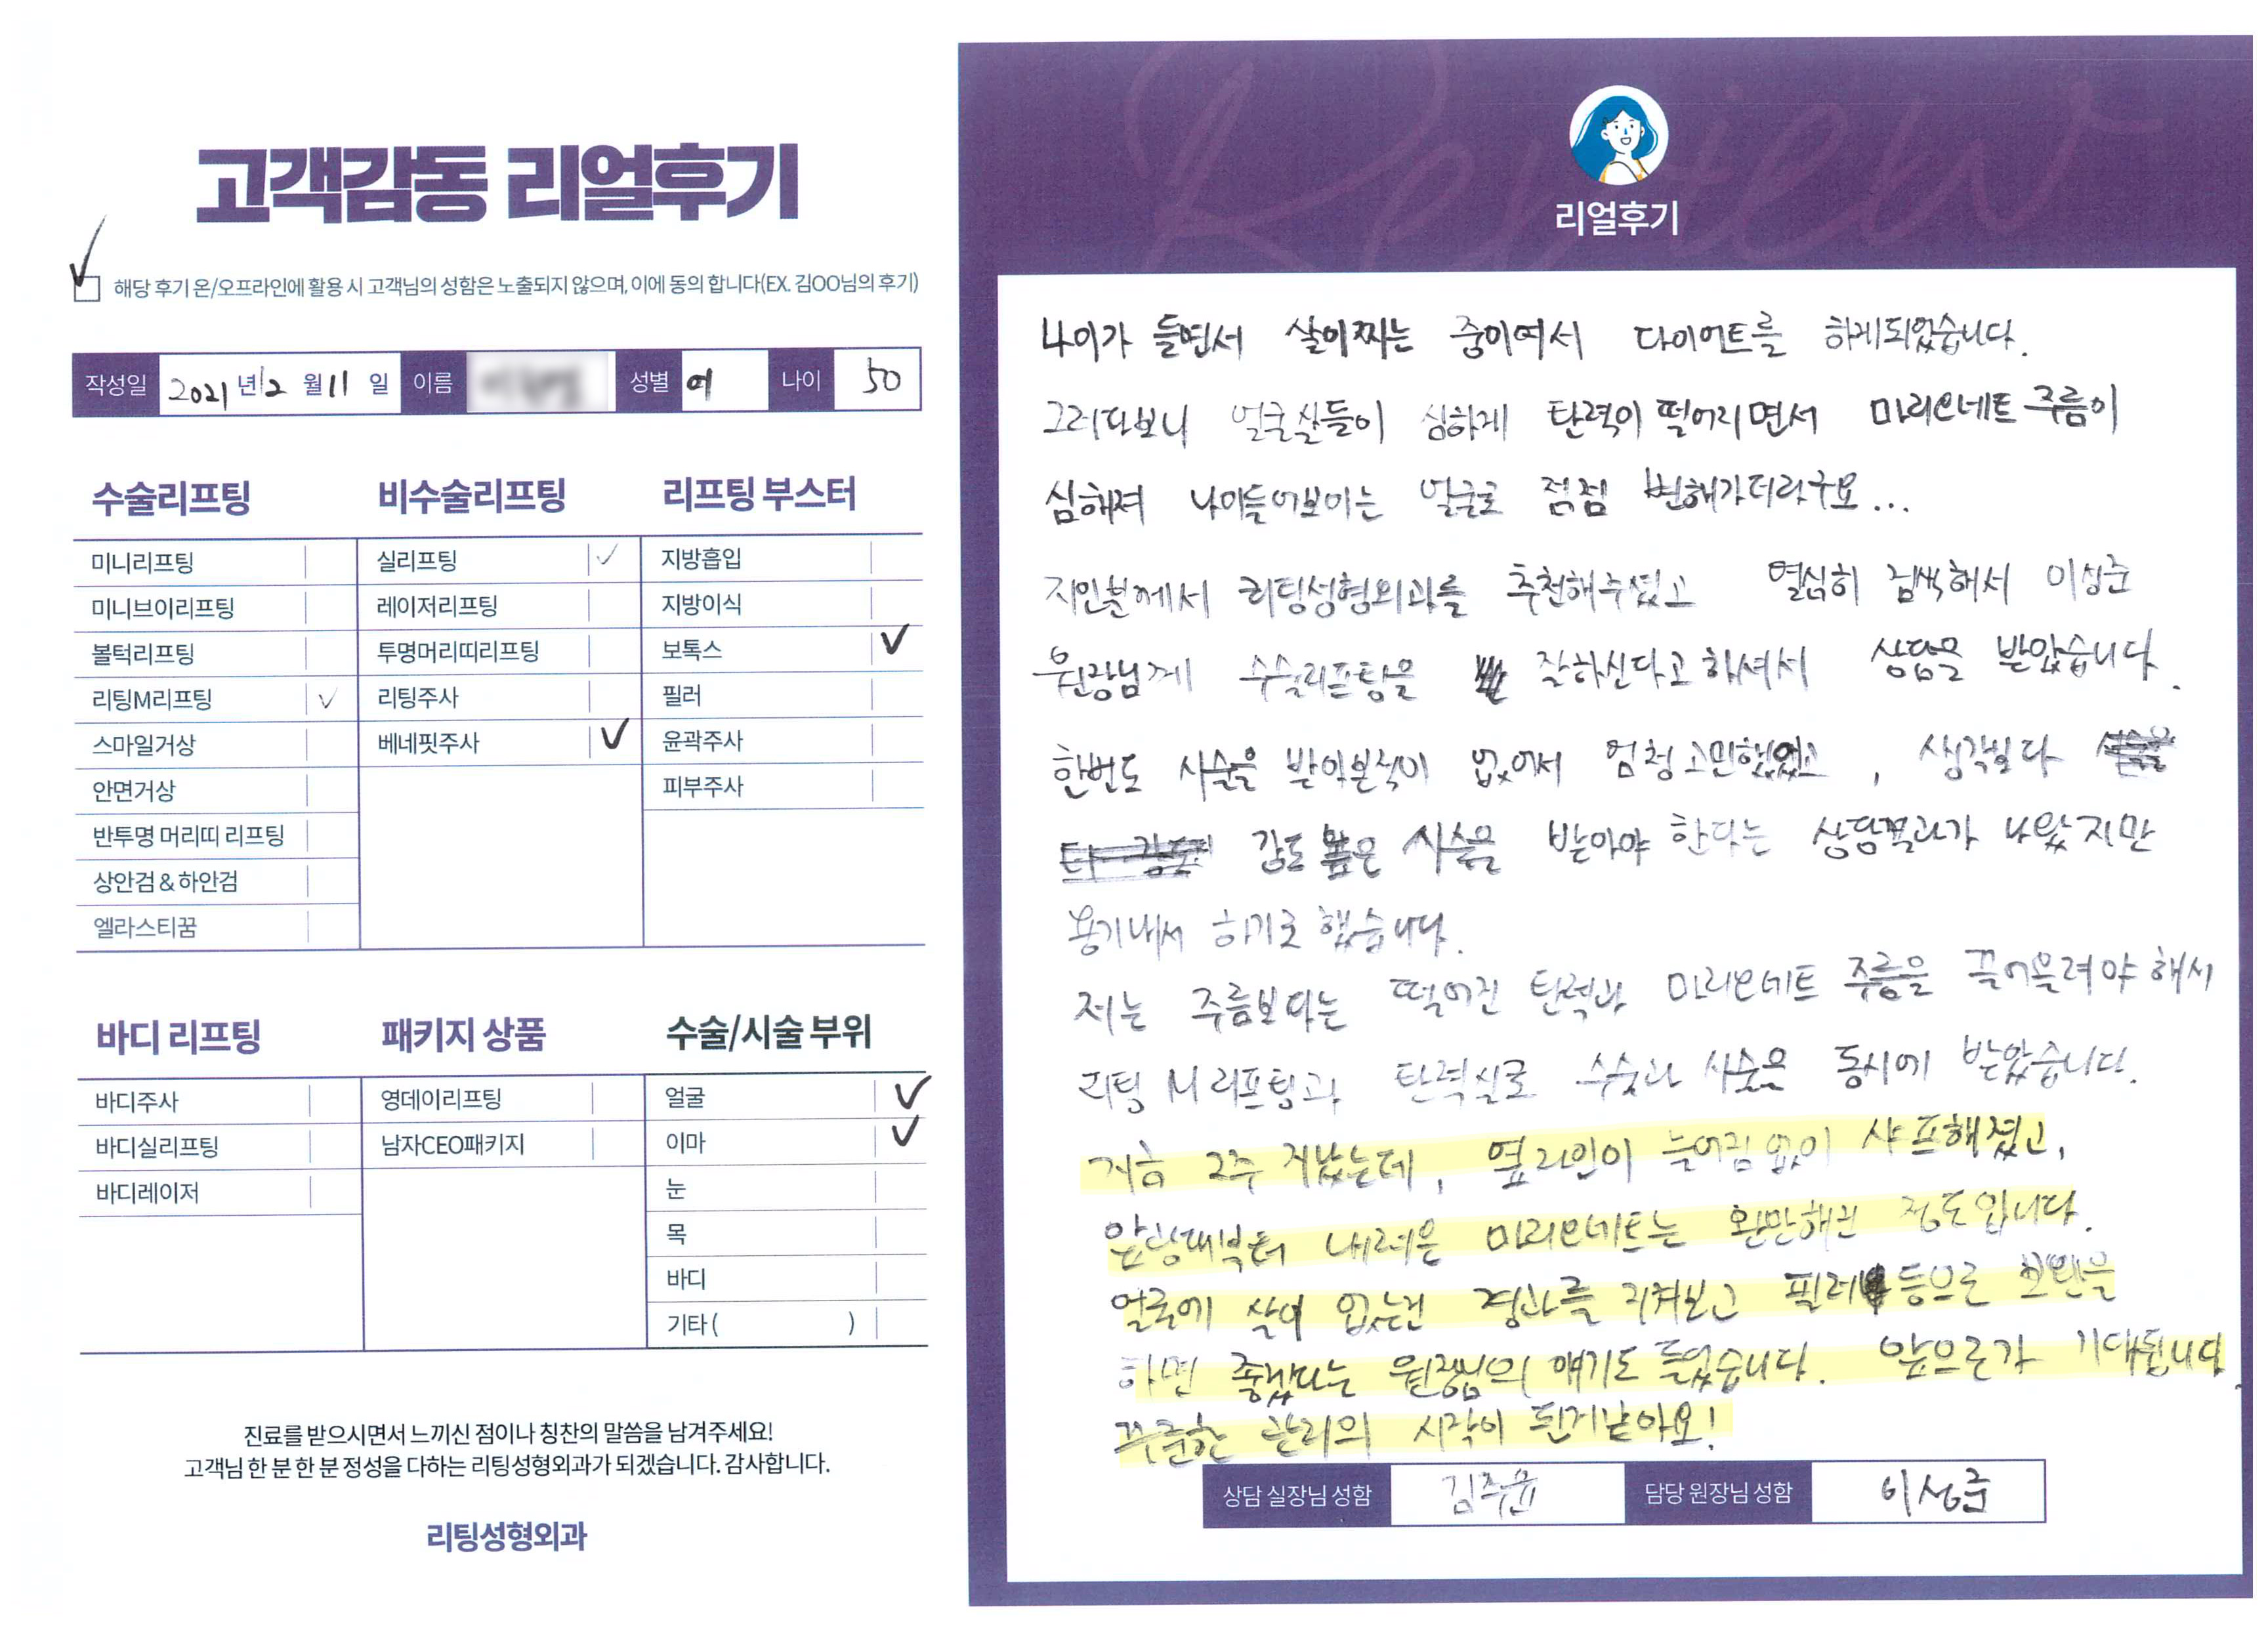 고객감동 리얼후기
해당 후기 온/오프라인에 활용 시 고객님의 성함은 노출되지 않으며, 이에 동의 합니다(EX. 김OO님의 후기)
작성일 2021 년 12 월 11 일 이름 성별 여 나이 50
수술리프팅
미니리프팅
미니브이리프팅
볼턱리프팅
리팅M리프팅 ✓
스마일거상
안면거상
반투명 머리띠 리프팅
상안검 & 하안검
엘라스티꿈
비수술리프팅
실리프팅 ✓
레이저리프팅
투명머리띠리프팅
리팅주사
베네핏주사 ✓
리프팅 부스터
지방흡입
지방이식
보톡스 ✓
필러
윤곽주사
피부주사
바디 리프팅
바디주사
바디실리프팅
바디레이저
패키지 상품
영데이리프팅
남자CEO패키지
수술/시술 부위
얼굴 ✓
이마 ✓
눈
목
바디
기타 ( )
진료를 받으시면서 느끼신 점이나 칭찬의 말씀을 남겨주세요!
고객님 한 분 한 분 정성을 다하는 리팅성형외과가 되겠습니다. 감사합니다.
리팅성형외과
Review
리얼후기
나이가 들면서 살이찌는 중이여서 다이어트를 하게되었습니다.
그러다보니 얼굴살들이 심하게 탄력이 떨어지면서 마리오네트 주름이
심해져 나이들어보이는 얼굴로 점점 변해가더라구요...
지인분께서 리팅성형외과를 추천해주셨고 열심히 검색해서 이성준
원장님께 수술리프팅을 잘하신다고 하셔서 상담을 받았습니다.
한번도 시술을 받아본적이 없어서 엄청 고민했었고, 생각보다
강도 높은 시술을 받아야 한다는 상담결과가 나왔지만
용기내서 하기로 했습니다.
저는 주름보다는 떨어진 탄력과 마리오네트 주름을 끌어올려야 해서
리팅 M리프팅과 탄력실로 수술과 시술을 동시에 받았습니다.
지금 2주 지났는데, 옆라인이 늘어짐 없이 샤프해졌고,
앞광대부터 내려온 마리오네트는 완만해진 정도입니다.
얼굴에 살이 없는건 경과를 지켜보고 필러 등으로 보완을
하면 좋겠다는 원장님의 얘기도 들었습니다. 앞으로가 기대됩니다.
꾸준한 관리의 시작이 된거같아요!
상담 실장님 성함 김주윤 담당 원장님 성함 이성준